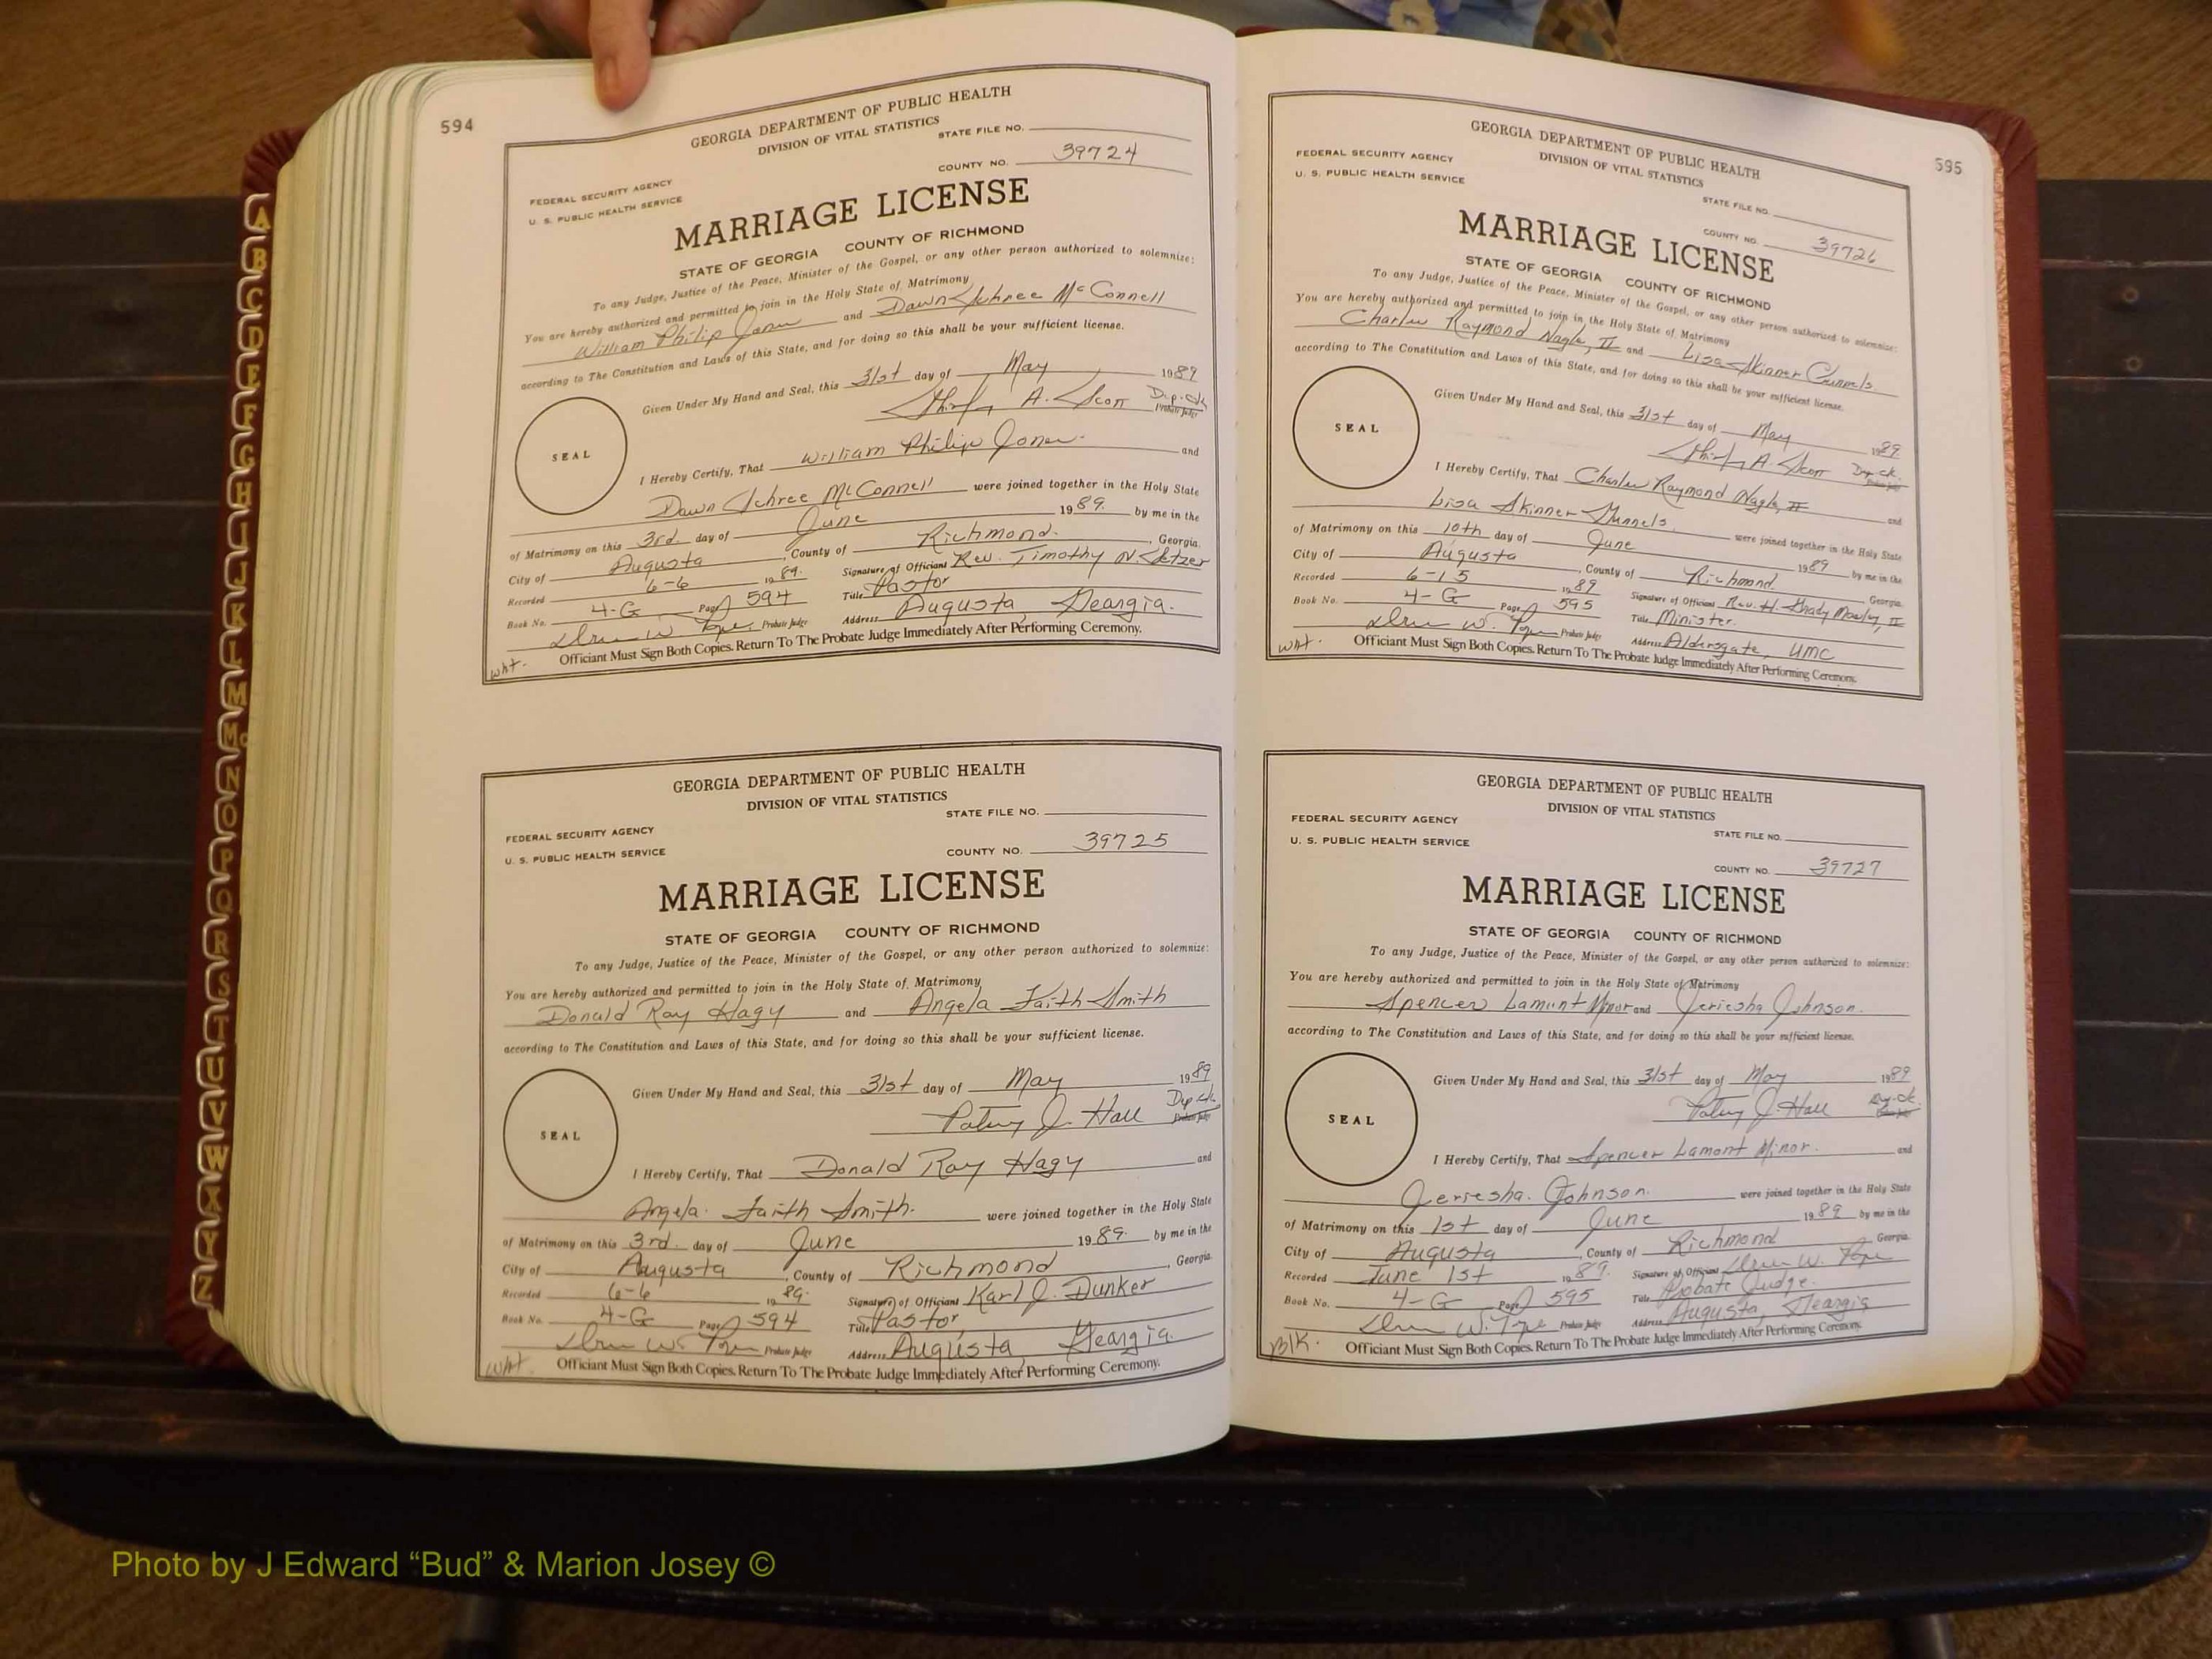 594
GEORGIA DEPARTMENT OF PUBLIC HEALTH
DIVISION OF VITAL STATISTICS
STATE FILE NO.
COUNTY NO. 39724
FEDERAL SECURITY AGENCY
U. S. PUBLIC HEALTH SERVICE
MARRIAGE LICENSE
STATE OF GEORGIA COUNTY OF RICHMOND
To any Judge, Justice of the Peace, Minister of the Gospel, or any other person authorized to solemnize:
You are hereby authorized and permitted to join in the Holy State of Matrimony
William Philip Jones and Dawn McConnell
according to The Constitution and Laws of this State, and for doing so this shall be your sufficient license.
Given Under My Hand and Seal, this 31st day of May 1989
A. Scott Dep. Ck. Probate Judge
SEAL
I Hereby Certify, That William Philip Jones and
Dawn McConnell were joined together in the Holy State
of Matrimony on this 3rd. day of June 1989. by me in the
City of Augusta, County of Richmond, Georgia.
Recorded 6-6 1989. Signature of Officiant Rev. Timothy N. Setzer
Book No. 4-G Page 594 Title Pastor
Probate Judge Address Augusta, Georgia.
wht. Officiant Must Sign Both Copies. Return To The Probate Judge Immediately After Performing Ceremony.
GEORGIA DEPARTMENT OF PUBLIC HEALTH
DIVISION OF VITAL STATISTICS
STATE FILE NO.
FEDERAL SECURITY AGENCY
U. S. PUBLIC HEALTH SERVICE
COUNTY NO. 39725
MARRIAGE LICENSE
STATE OF GEORGIA COUNTY OF RICHMOND
To any Judge, Justice of the Peace, Minister of the Gospel, or any other person authorized to solemnize:
You are hereby authorized and permitted to join in the Holy State of Matrimony
Donald Ray Hagy and Angela Faith Smith
according to The Constitution and Laws of this State, and for doing so this shall be your sufficient license.
Given Under My Hand and Seal, this 31st day of May 1989
Patsy J. Hall Dep. Ck. Probate Judge
SEAL
I Hereby Certify, That Donald Ray Hagy and
Angela Faith Smith. were joined together in the Holy State
of Matrimony on this 3rd. day of June 1989. by me in the
City of Augusta, County of Richmond, Georgia.
Recorded 6-6 1989. Signature of Officiant Karl J. Dunker
Book No. 4-G Page 594 Title Pastor
Probate Judge Address Augusta, Georgia
wht. Officiant Must Sign Both Copies. Return To The Probate Judge Immediately After Performing Ceremony.
595
GEORGIA DEPARTMENT OF PUBLIC HEALTH
DIVISION OF VITAL STATISTICS
FEDERAL SECURITY AGENCY
U. S. PUBLIC HEALTH SERVICE
STATE FILE NO.
COUNTY NO. 39726
MARRIAGE LICENSE
STATE OF GEORGIA COUNTY OF RICHMOND
To any Judge, Justice of the Peace, Minister of the Gospel, or any other person authorized to solemnize:
You are hereby authorized and permitted to join in the Holy State of Matrimony
Charles Raymond Nagle, II and Lisa Skinner
according to The Constitution and Laws of this State, and for doing so this shall be your sufficient license.
Given Under My Hand and Seal, this 31st day of May 1989
A. Scott Dep. Ck. Probate Judge
SEAL
I Hereby Certify, That Charles Raymond Nagle, II and
Lisa Skinner were joined together in the Holy State
of Matrimony on this 10th day of June 1989 by me in the
City of Augusta, County of Richmond, Georgia.
Recorded 6-15 1989 Signature of Officiant Rev. H. Grady Mosley, II
Book No. 4-G Page 595 Title Minister.
Probate Judge Address Aldersgate, UMC
wht. Officiant Must Sign Both Copies. Return To The Probate Judge Immediately After Performing Ceremony.
GEORGIA DEPARTMENT OF PUBLIC HEALTH
DIVISION OF VITAL STATISTICS
FEDERAL SECURITY AGENCY
STATE FILE NO.
U. S. PUBLIC HEALTH SERVICE
COUNTY NO. 39727
MARRIAGE LICENSE
STATE OF GEORGIA COUNTY OF RICHMOND
To any Judge, Justice of the Peace, Minister of the Gospel, or any other person authorized to solemnize:
You are hereby authorized and permitted to join in the Holy State of Matrimony
Spencer Lamont Minor and Jeriesha Johnson.
according to The Constitution and Laws of this State, and for doing so this shall be your sufficient license.
Given Under My Hand and Seal, this 31st day of May 1989
Patsy J. Hall Dep. Ck. Probate Judge
SEAL
I Hereby Certify, That Spencer Lamont Minor. and
Jeriesha Johnson. were joined together in the Holy State
of Matrimony on this 1st day of June 1989 by me in the
City of Augusta, County of Richmond Georgia.
Recorded June 1st 1989. Signature of Officiant
Book No. 4-G Page 595 Title Probate Judge.
Probate Judge Address Augusta, Georgia
Blk. Officiant Must Sign Both Copies. Return To The Probate Judge Immediately After Performing Ceremony.
A
B
C
D
E
F
G
H
I
J
K
L
M
Mc
N
O
P
Q
R
S
T
U
V
W
X
Y
Z
Photo by J Edward “Bud” & Marion Josey ©